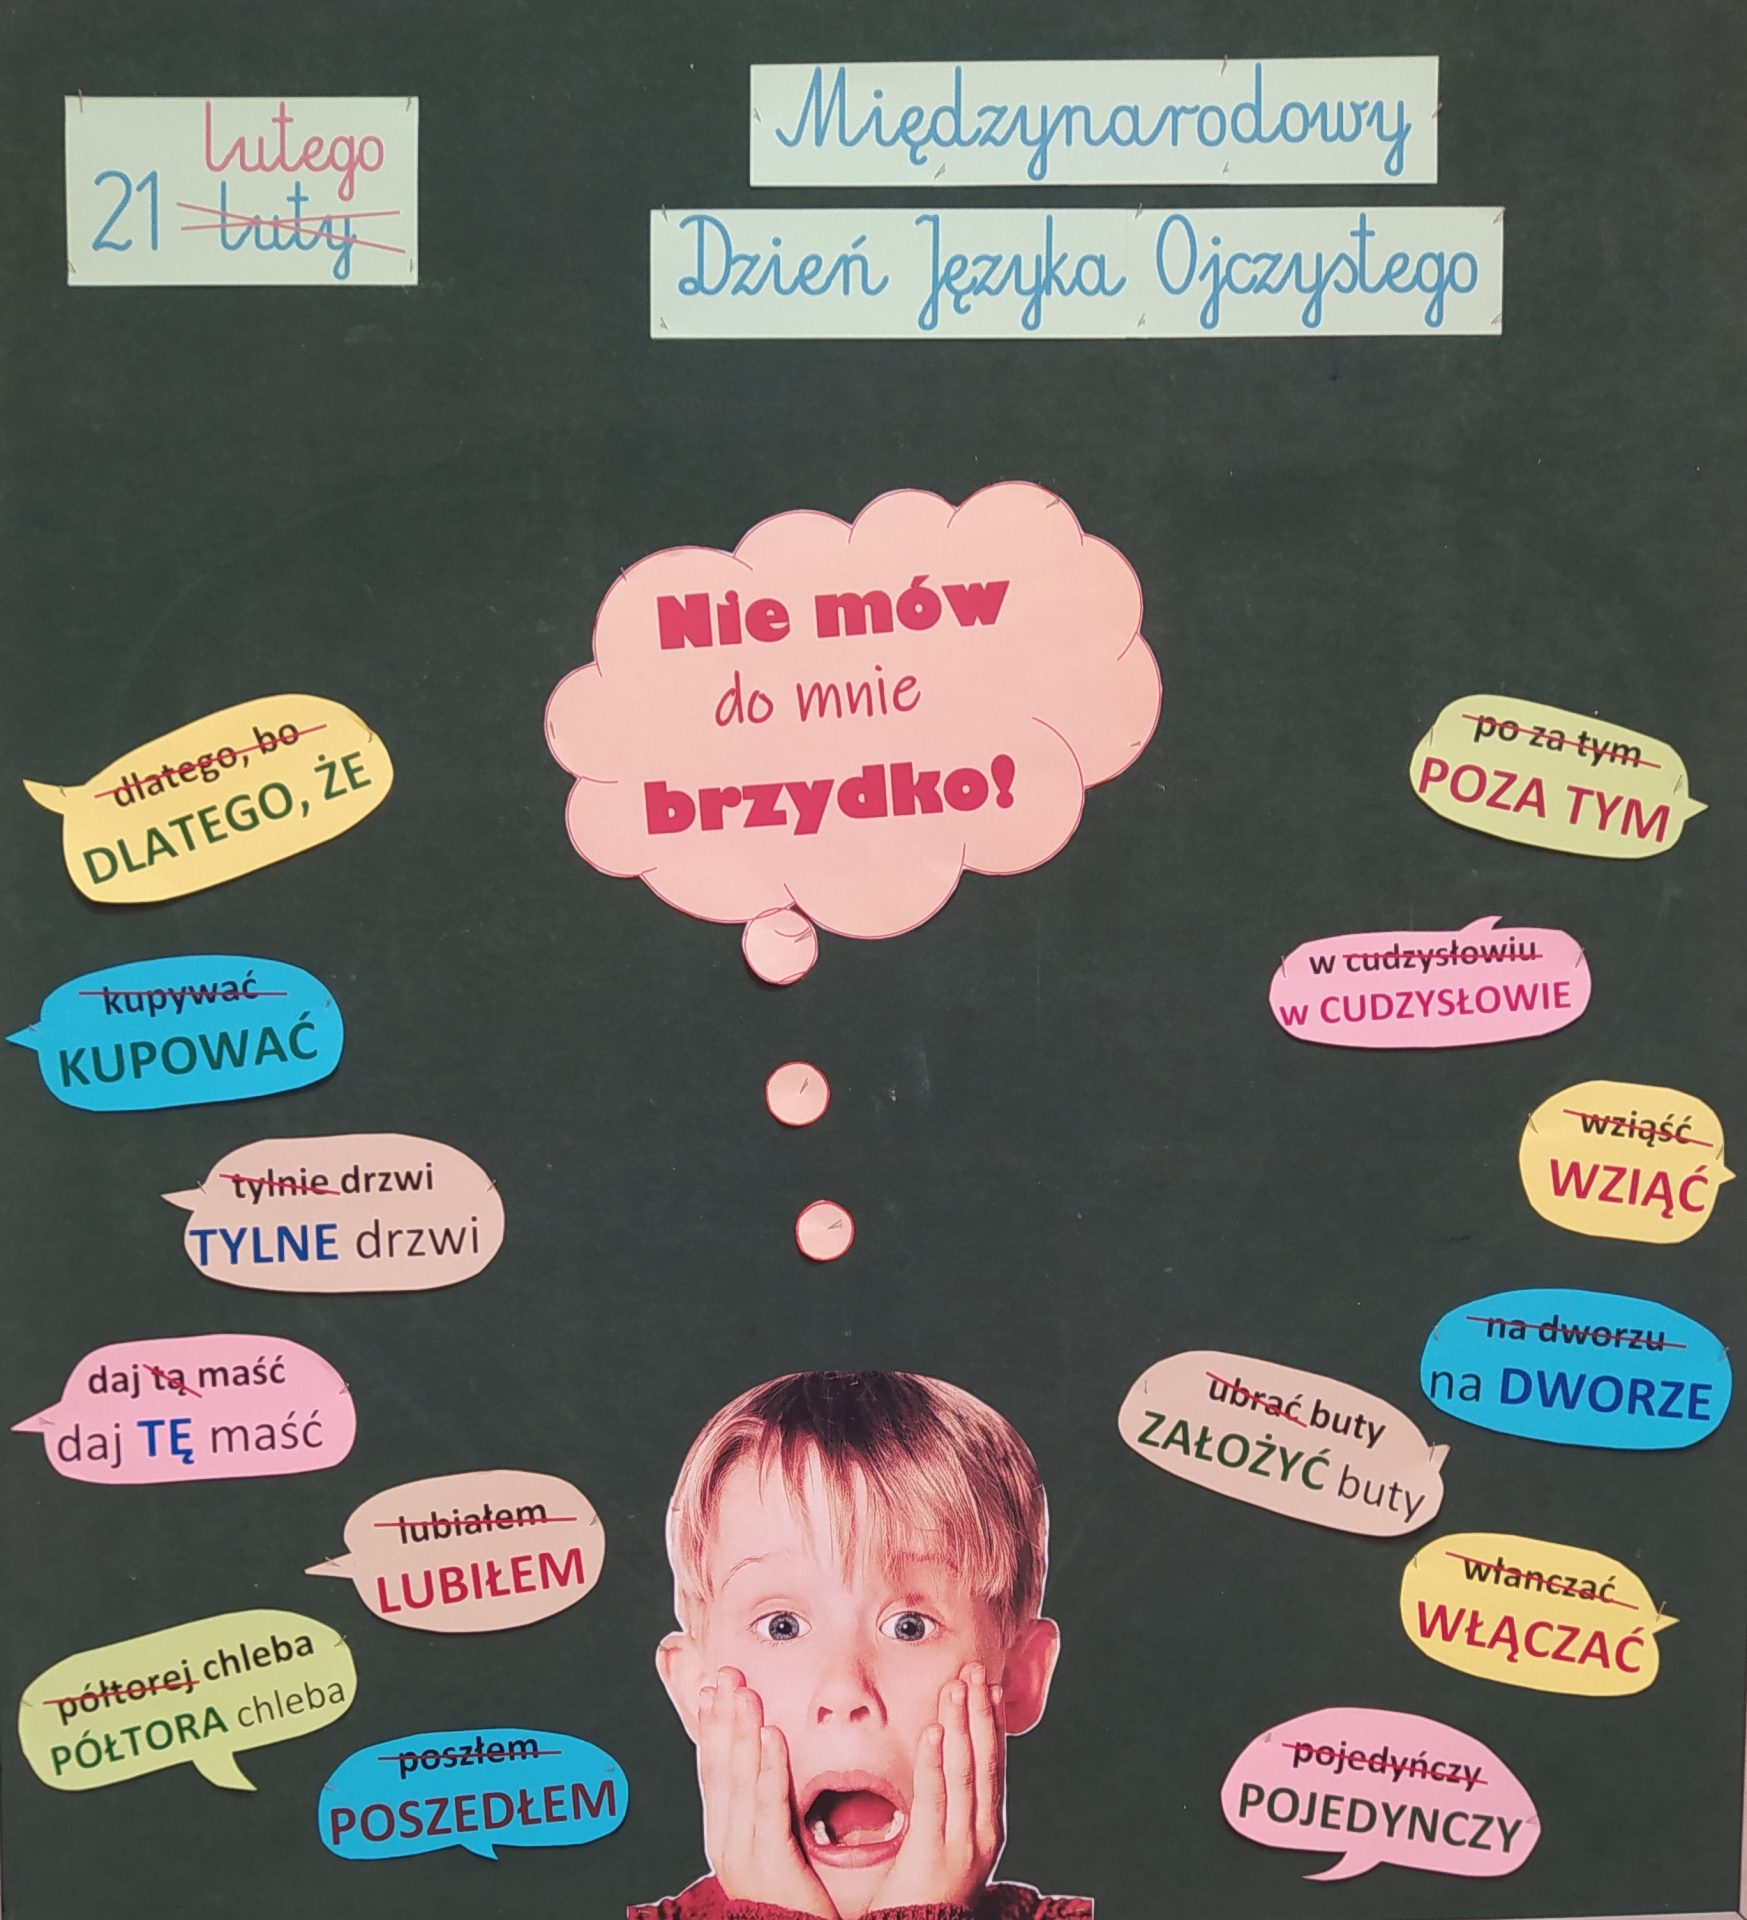 lutego
21 luty
Międzynarodowy
Dzień Języka Ojczystego
Nie mów
do mnie
brzydko!
dlatego, bo
DLATEGO, ŻE
kupywać
KUPOWAĆ
tylnie drzwi
TYLNE drzwi
daj tą maść
daj TĘ maść
lubiałem
LUBIŁEM
półtorej chleba
PÓŁTORA chleba
poszłem
POSZEDŁEM
po za tym
POZA TYM
w cudzysłowiu
w CUDZYSŁOWIE
wziąść
WZIĄĆ
na dworzu
na DWORZE
ubrać buty
ZAŁOŻYĆ buty
włanczać
WŁĄCZAĆ
pojedyńczy
POJEDYNCZY